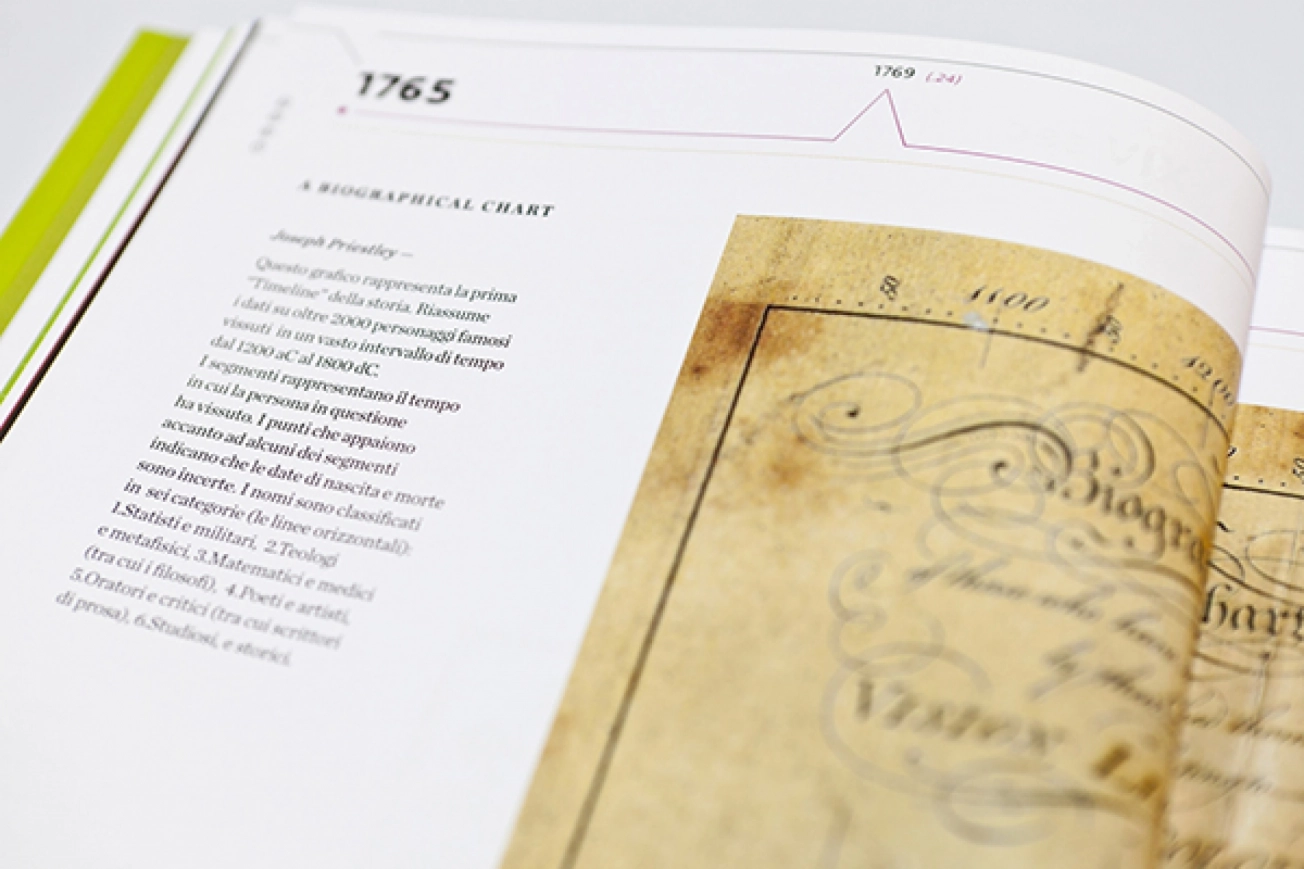 1765
1769 (.24)
A BIOGRAPHICAL CHART
Joseph Priestley —
Questo grafico rappresenta la prima
"Timeline" della storia. Riassume
i dati su oltre 2000 personaggi famosi
vissuti in un vasto intervallo di tempo
dal 1200 aC al 1800 dC.
I segmenti rappresentano il tempo
in cui la persona in questione
ha vissuto. I punti che appaiono
accanto ad alcuni dei segmenti
indicano che le date di nascita e morte
sono incerte. I nomi sono classificati
in sei categorie (le linee orizzontali):
1.Statisti e militari, 2.Teologi
e metafisici, 3.Matematici e medici
(tra cui i filosofi), 4.Poeti e artisti,
5.Oratori e critici (tra cui scrittori
di prosa), 6.Studiosi, e storici.
50 1100
Biogra
hart